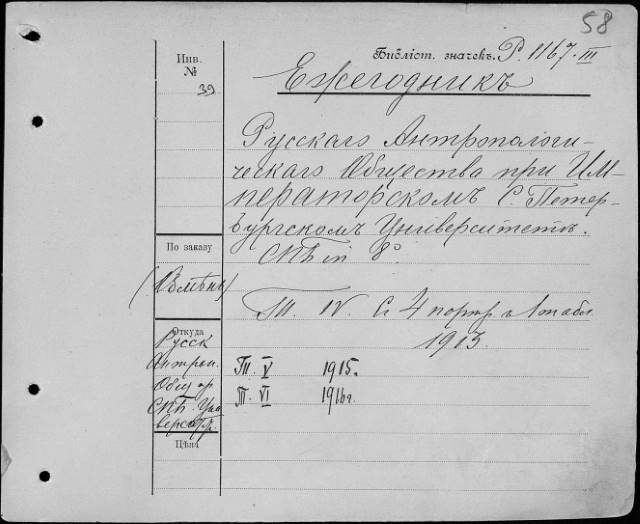 58
Библіот. значекъ. Р. 1167-III
Инв.
№
39
Ежегодникъ
Русскаго Антропологи-
ческаго Общества при Им-
ператорскомъ С. Петер-
бургскомъ Университетѣ.
СПБ in 8º
По заказу
(Обмѣнъ)
Т. IV. Съ 4 портр. и 1 табл.
1913.
Откуда
Русск
Антроп.
Общ. при
СПБ. Уни
верс
Т. V 1915.
Т. VI 1916г.
Цѣна